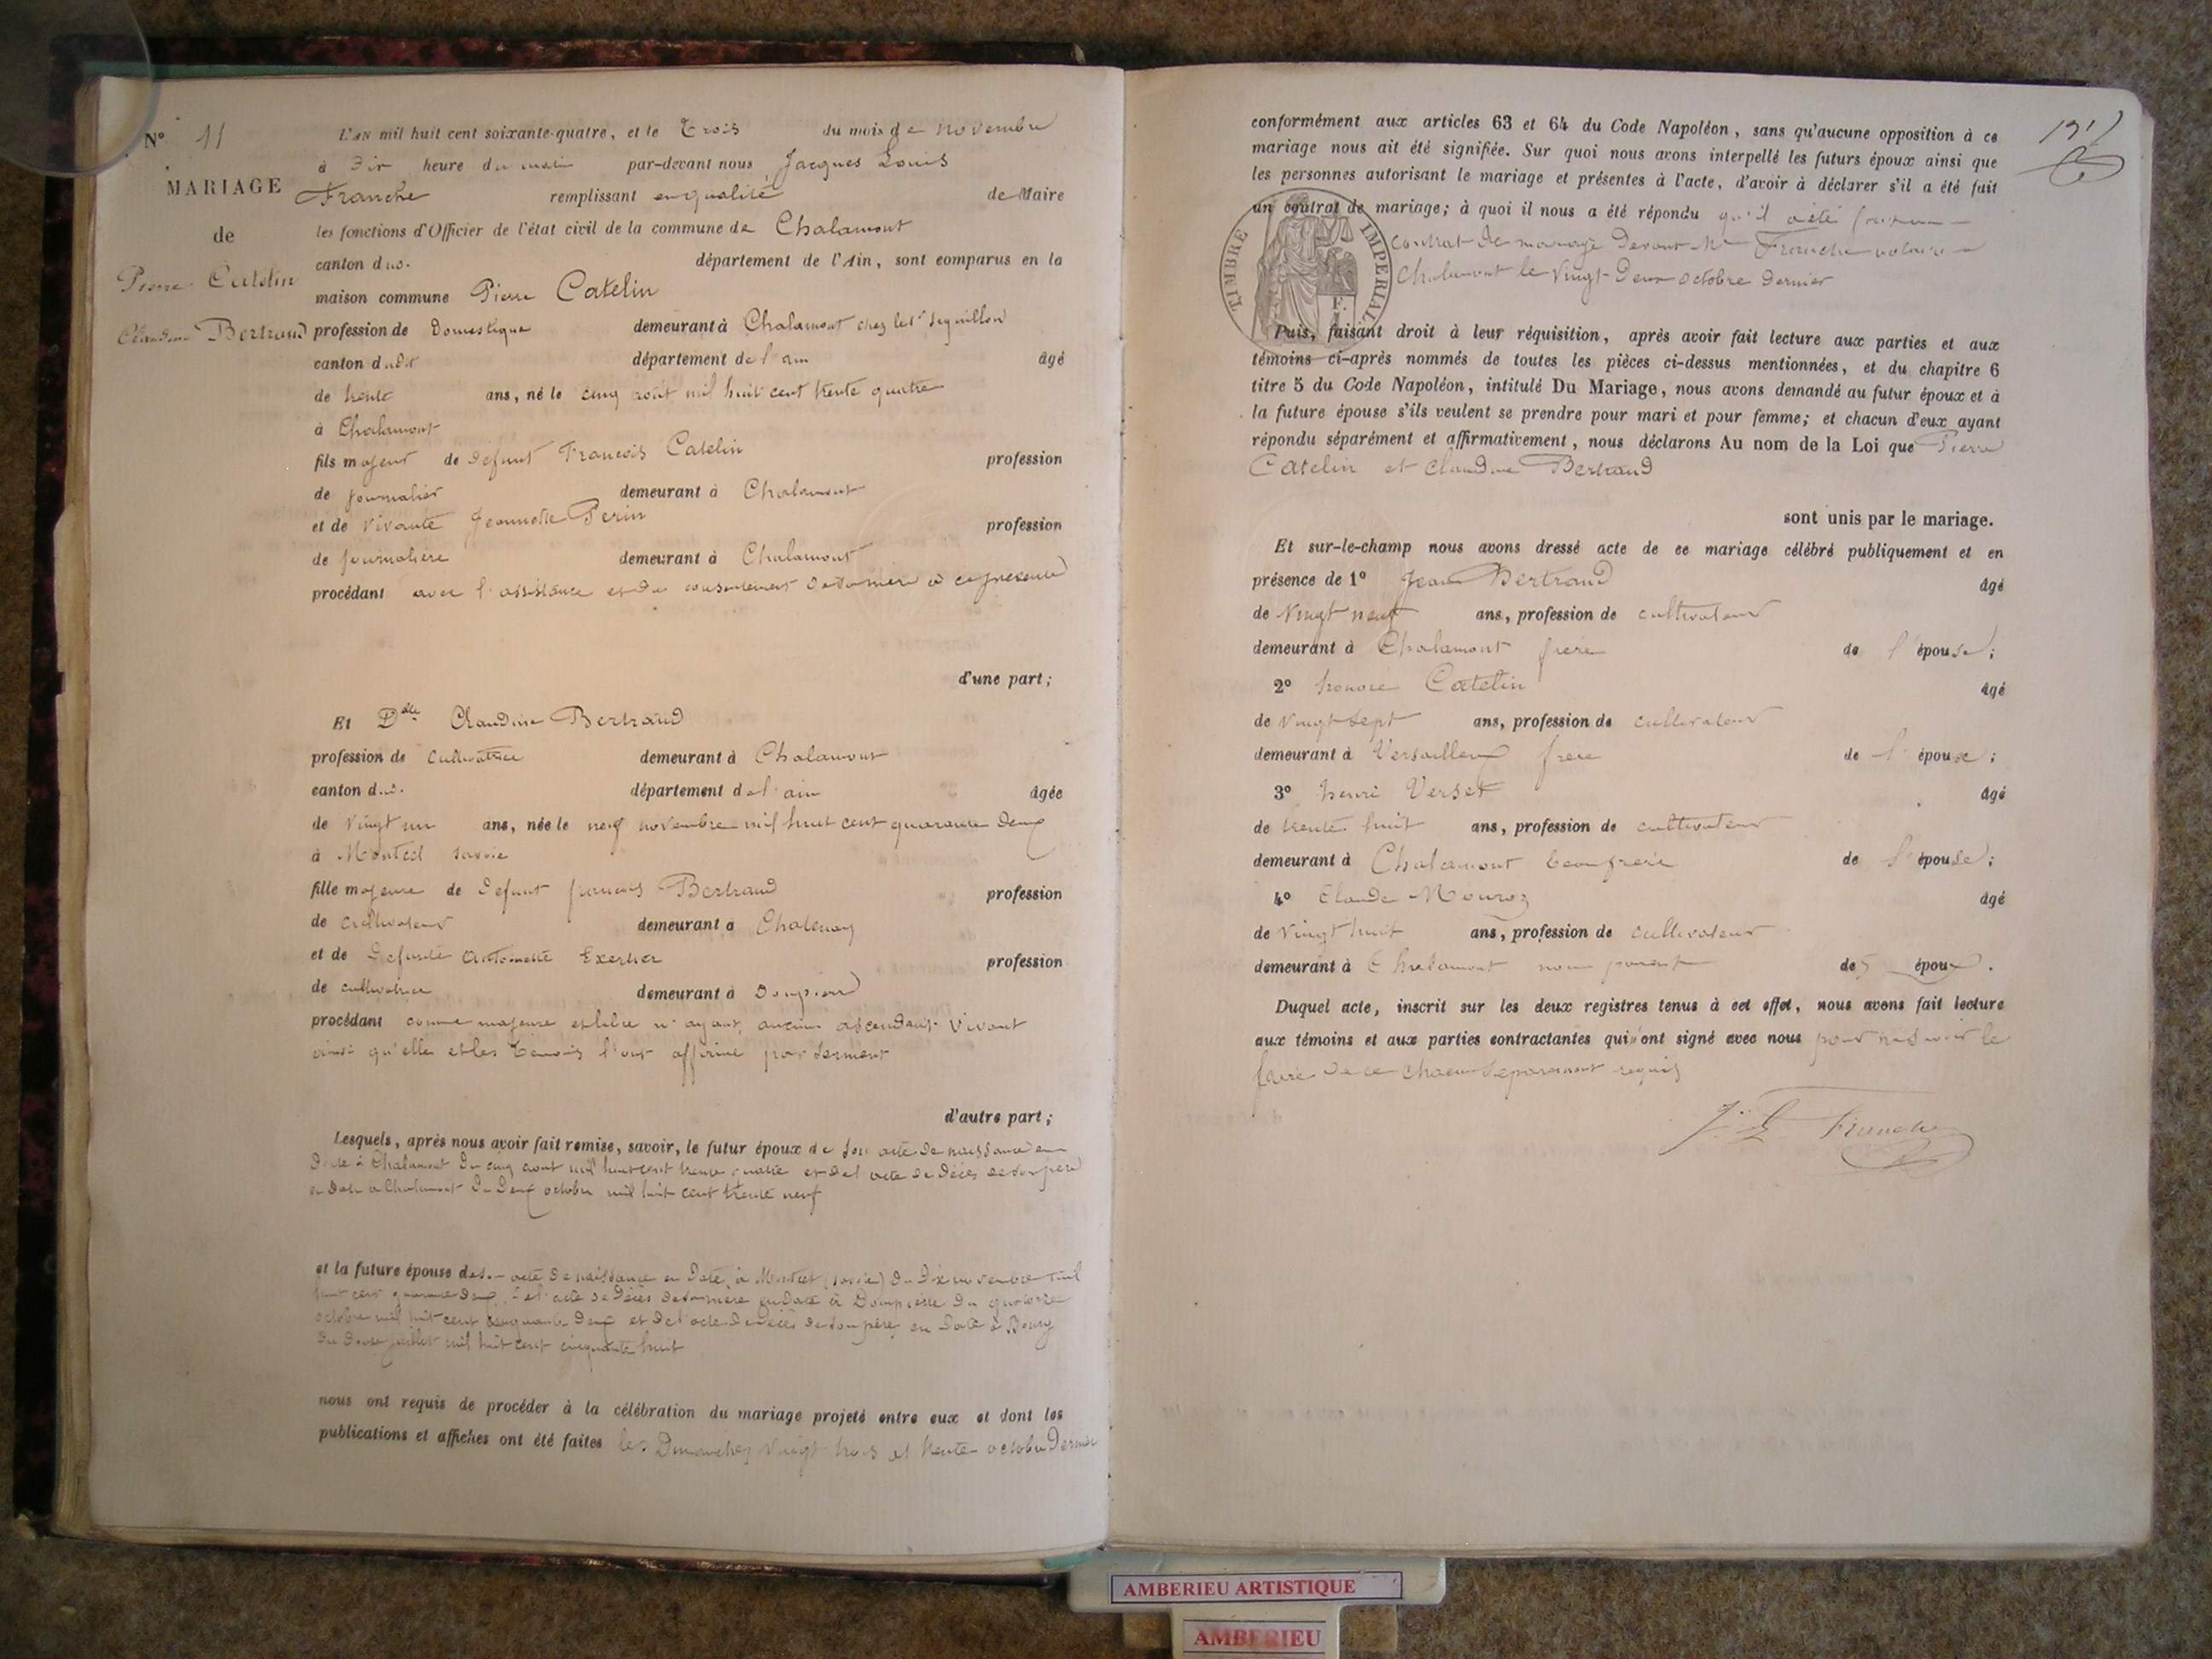 N° 11
MARIAGE
de
Pierre Catelin
Claudine Bertrand
L'AN mil huit cent soixante-quatre, et le Trois du mois de novembre
à Dix heure du matin par-devant nous Jacques Louis
Franche remplissant en qualité de Maire
les fonctions d'Officier de l'état civil de la commune de Chalamont
canton dud. département de l'Ain, sont comparus en la
maison commune Pierre Catelin
profession de Domestique demeurant à Chalamont chez le Sr
canton dudit département de l'ain âgé
de trente ans, né le cinq août mil huit cent trente quatre
à Chalamont
fils majeur de défunt François Catelin profession
de journalier demeurant à Chalamont
et de vivante Jeannette Perin profession
de journalière demeurant à Chalamont
procédant avec l'assistance et du consentement de sa mère à ce présente
d'une part;
Et Dlle Claudine Bertrand
profession de cultivatrice demeurant à Chalamont
canton dud. département de l'ain âgée
de vingt un ans, née le neuf novembre mil huit cent quarante deux
à Montcel savoie
fille majeure de défunt françois Bertrand profession
de cultivateur demeurant à Chatenay
et de défunte antoinette Exertier profession
de cultivatrice demeurant à Dompierre
procédant comme majeure et libre n'ayant aucun ascendant vivant
ainsi qu'elle et les témoins l'ont affirmé par serment
d'autre part;
Lesquels, après nous avoir fait remise, savoir, le futur époux de son acte de naissance en
date à Chalamont du cinq aout mil huit cent trente quatre et de l'acte de décès de son père
en date à Chalamont du deux octobre mil huit cent trente neuf
et la future épouse des.- acte de naissance en date à Montcel (savoie) du dix novembre mil
huit cent quarante deux, de l'acte de décès de sa mère en date à Dompierre du quatorze
octobre mil huit cent cinquante deux et de l'acte de décès de son père en date à Bourg
du douze juillet mil huit cent cinquante huit
nous ont requis de procéder à la célébration du mariage projeté entre eux et dont les
publications et affiches ont été faites les Dimanches vingt trois et trente octobre dernier
conformément aux articles 63 et 64 du Code Napoléon, sans qu'aucune opposition à ce
mariage nous ait été signifiée. Sur quoi nous avons interpellé les futurs époux ainsi que
les personnes autorisant le mariage et présentes à l'acte, d'avoir à déclarer s'il a été fait
un contrat de mariage; à quoi il nous a été répondu qu'il a été fait un
contrat de mariage devant Me Franche notaire à
Chalamont le vingt-deux octobre dernier
TIMBRE IMPERIAL
Puis, faisant droit à leur réquisition, après avoir fait lecture aux parties et aux
témoins ci-après nommés de toutes les pièces ci-dessus mentionnées, et du chapitre 6
titre 5 du Code Napoléon, intitulé Du Mariage, nous avons demandé au futur époux et à
la future épouse s'ils veulent se prendre pour mari et pour femme; et chacun d'eux ayant
répondu séparément et affirmativement, nous déclarons Au nom de la Loi que Pierre
Catelin et Claudine Bertrand
sont unis par le mariage.
Et sur-le-champ nous avons dressé acte de ce mariage célébré publiquement et en
présence de 1° Jean Bertrand âgé
de Vingt neuf ans, profession de cultivateur
demeurant à Chalamont frère de l'épouse;
2° honoré Catelin âgé
de vingt sept ans, profession de cultivateur
demeurant à Versailleux frère de l'épouse;
3° henri Verset âgé
de trente huit ans, profession de cultivateur
demeurant à Chalamont beaufrère de l'épouse;
4° Claude Mouroz âgé
de vingt huit ans, profession de cultivateur
demeurant à Chalamont non parent des époux.
Duquel acte, inscrit sur les deux registres tenus à cet effet, nous avons fait lecture
aux témoins et aux parties contractantes qui n'ont signé avec nous pour ne savoir le
faire de ce chacun séparément requis
J. L. Franche
AMBERIEU ARTISTIQUE
AMBERIEU